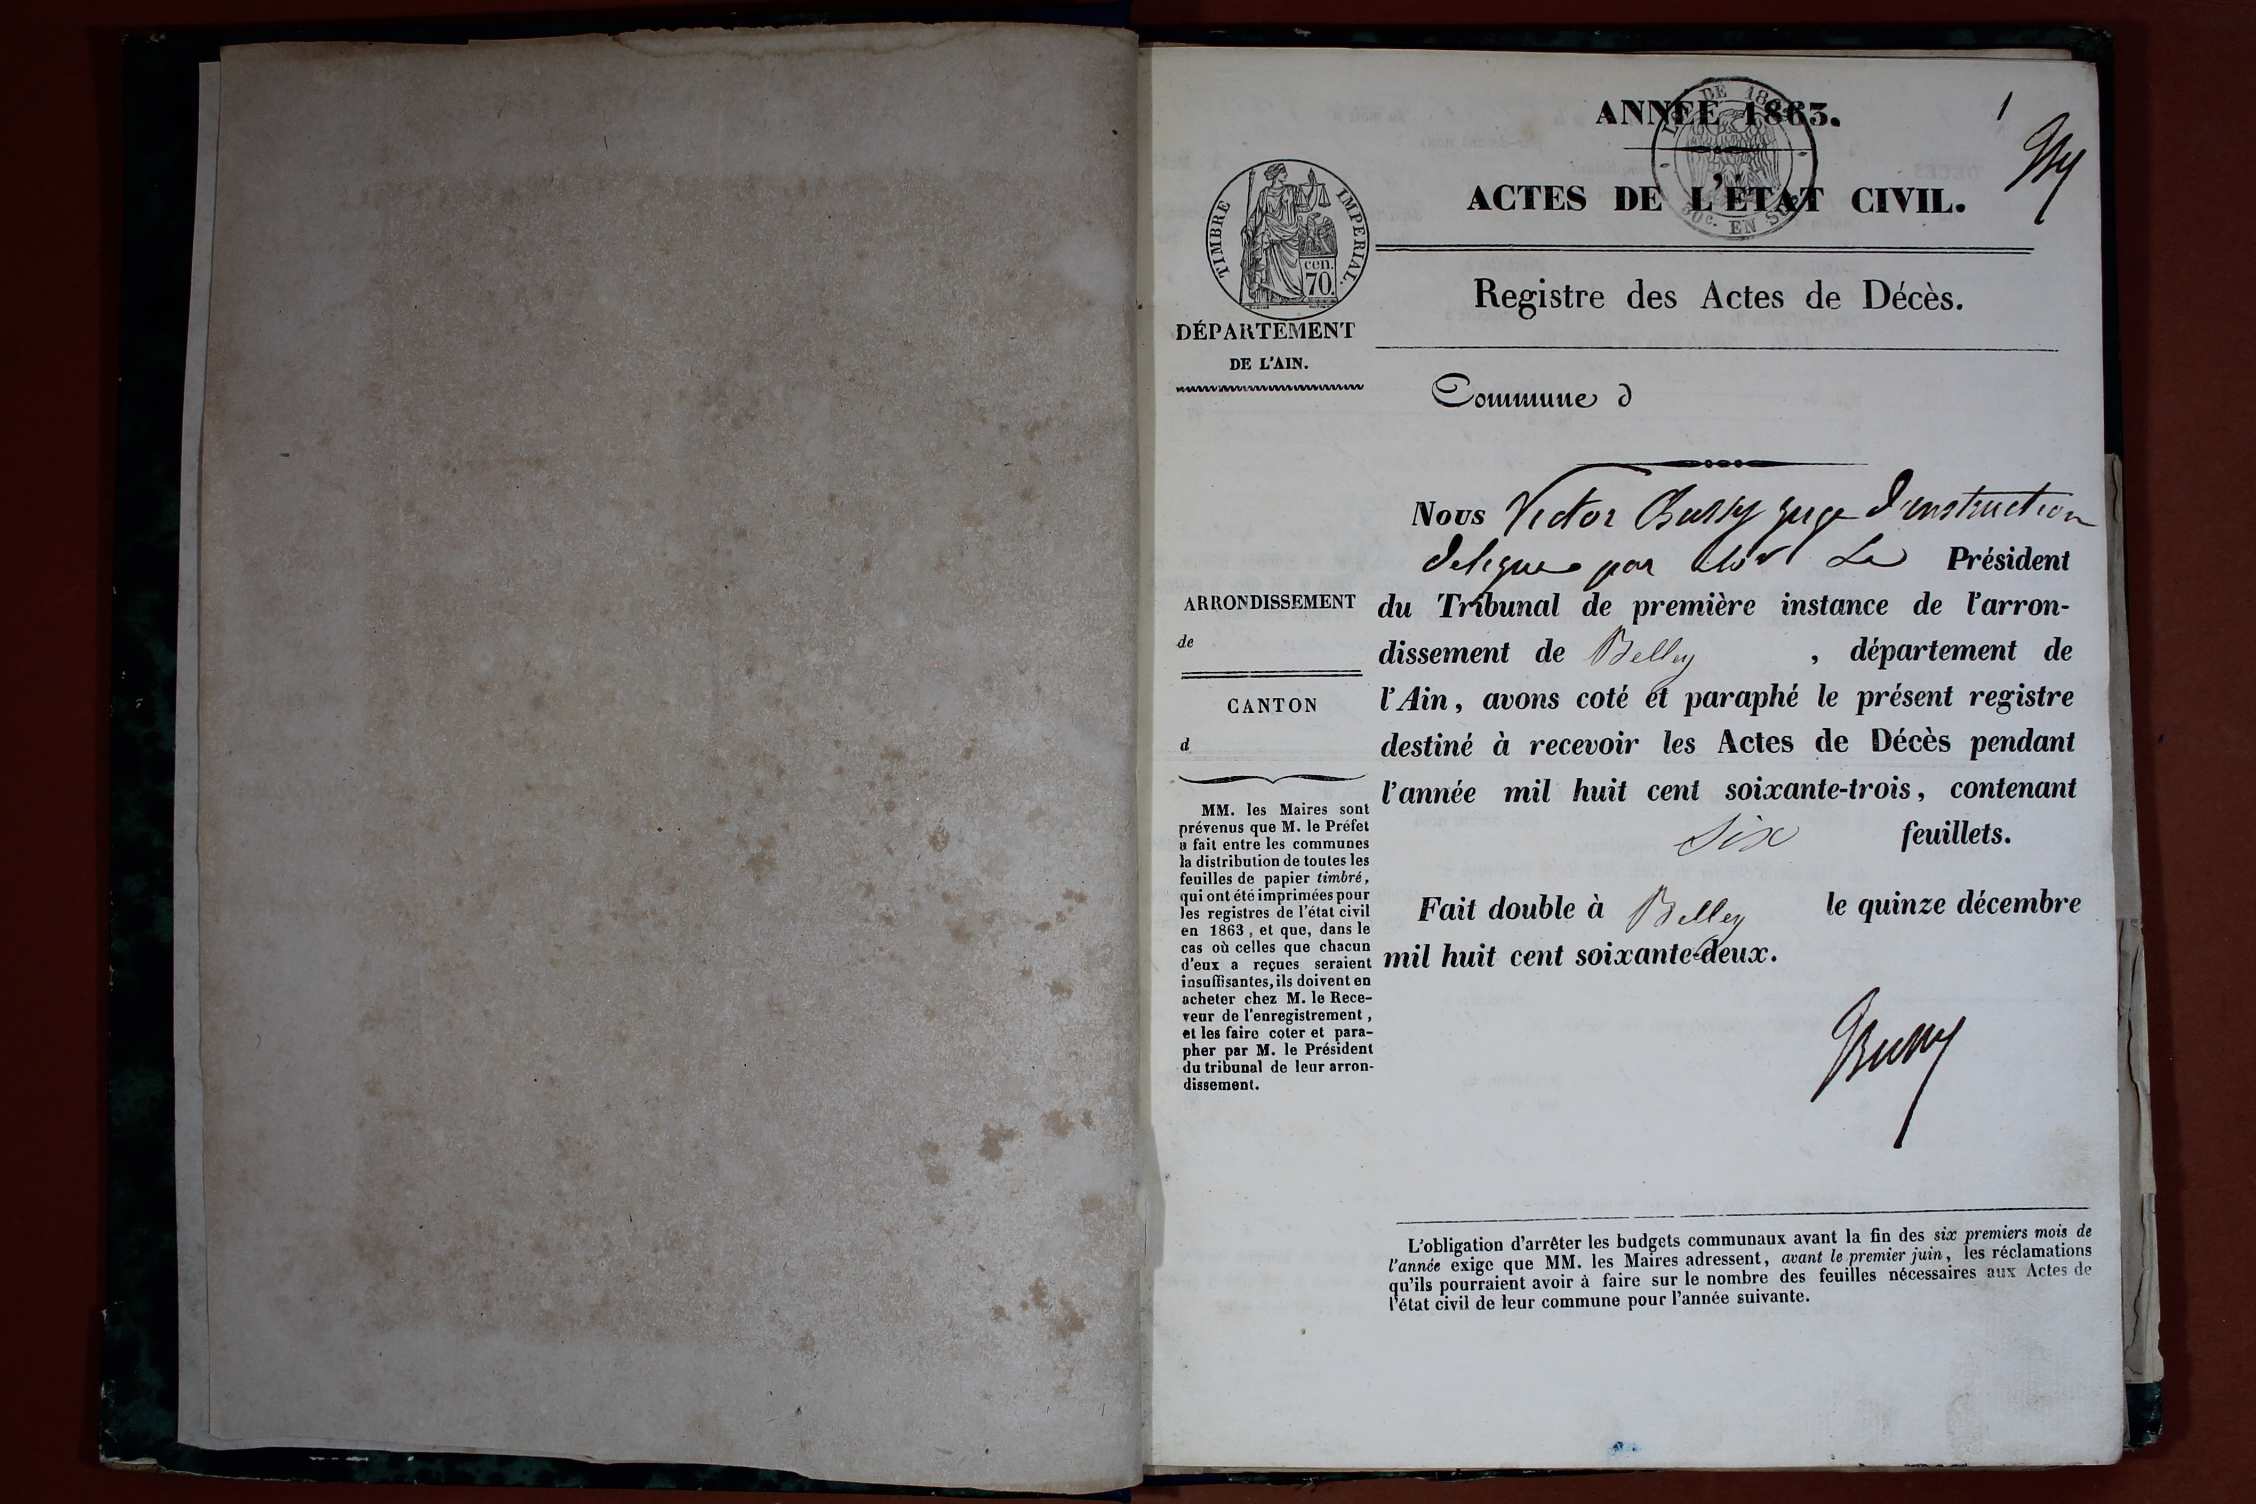 ANNÉE 1863.
1
ACTES DE L'ÉTAT CIVIL.
TIMBRE IMPERIAL.
cen.
70.
DE 18
50c. EN SUS
Registre des Actes de Décès.
DÉPARTEMENT
DE L'AIN.
Commune d
Nous Victor Bussy juge d'instruction
delegue par Mr Le Président
ARRONDISSEMENT
de
CANTON
d
du Tribunal de première instance de l'arron-
dissement de Belley , département de
l'Ain, avons coté et paraphé le présent registre
destiné à recevoir les Actes de Décès pendant
l'année mil huit cent soixante-trois, contenant
Six feuillets.
Fait double à Belley le quinze décembre
mil huit cent soixante-deux.
Bussy
MM. les Maires sont
prévenus que M. le Préfet
a fait entre les communes
la distribution de toutes les
feuilles de papier timbré,
qui ont été imprimées pour
les registres de l'état civil
en 1863, et que, dans le
cas où celles que chacun
d'eux a reçues seraient
insuffisantes, ils doivent en
acheter chez M. le Rece-
veur de l'enregistrement,
et les faire coter et para-
pher par M. le Président
du tribunal de leur arron-
dissement.
L'obligation d'arrêter les budgets communaux avant la fin des six premiers mois de
l'année exige que MM. les Maires adressent, avant le premier juin, les réclamations
qu'ils pourraient avoir à faire sur le nombre des feuilles nécessaires aux Actes de
l'état civil de leur commune pour l'année suivante.